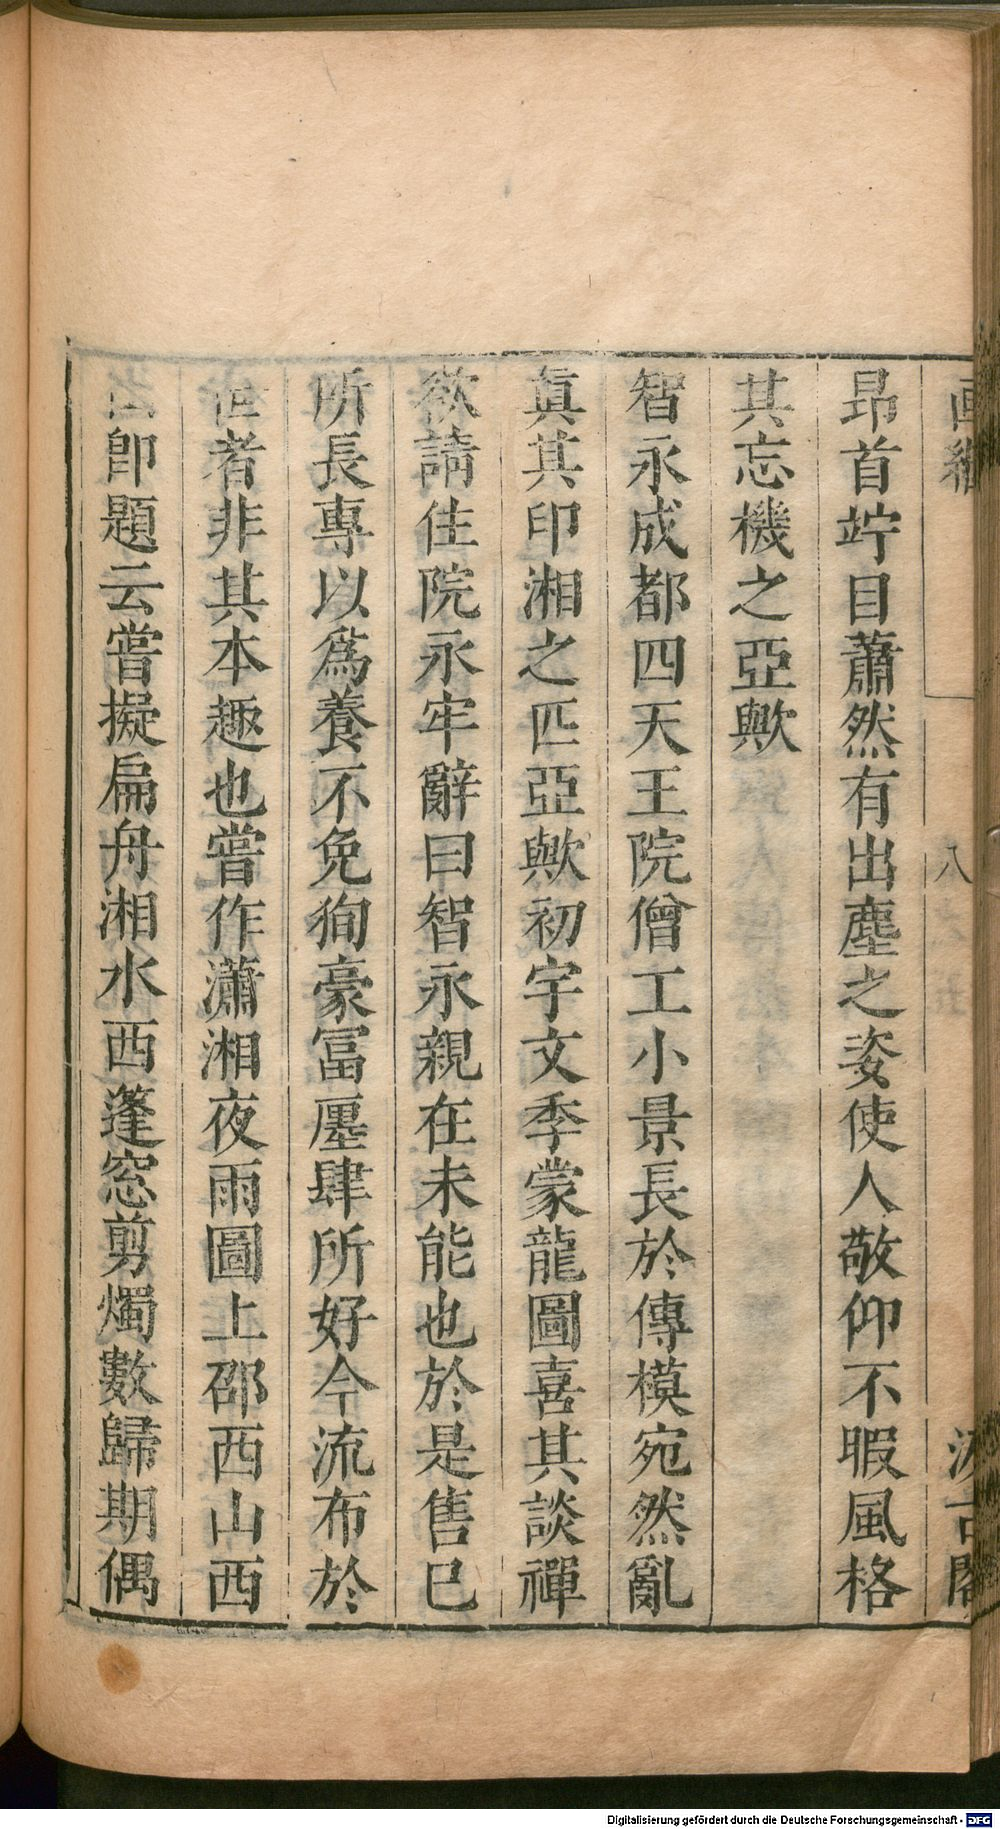 昂首竚目蕭然有出塵之姿使人敬仰不暇風格
其忘機之亞歟
智永成都四天王院僧工小景長於傳模宛然亂
眞其印湘之匹亞歟初宇文季蒙龍圖喜其談禪
欲請住院永牢辭曰智永親在未能也於是售已
所長專以爲養不免狥豪冨廛肆所好今流布於
者非其本趣也嘗作瀟湘夜雨圖上邵西山西
卽題云嘗擬扁舟湘水西蓬窓剪燭數歸期偶
八
Digitalisierung gefördert durch die Deutsche Forschungsgemeinschaft - DFG